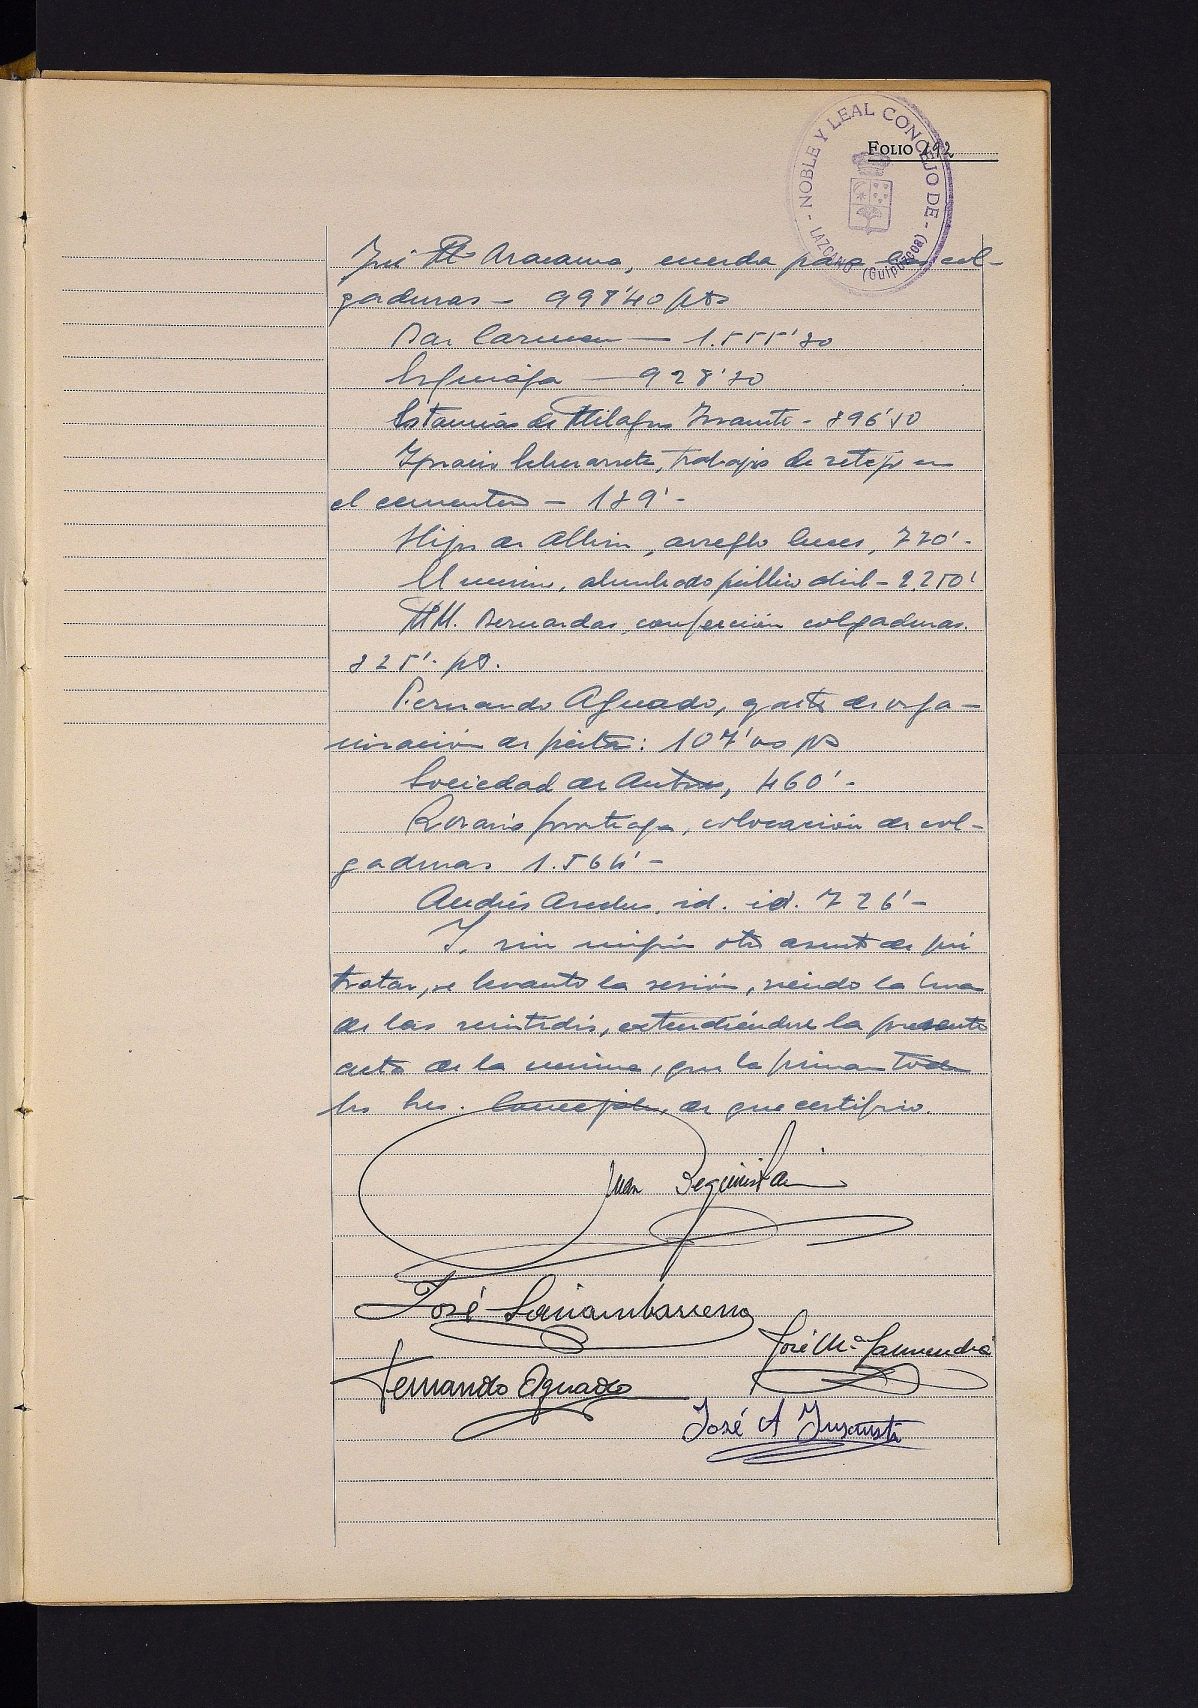 NOBLE Y LEAL CONCEJO DE
- LAZCANO (Guipúzcoa) -
FOLIO 192
José Mª Aracama, cuerda para las col-
gaduras - 998'40 pts
Bar Carmen — 1.555'80
— 928'
Estancias de Milagros - 896'10
Ignacio trabajos de retejo en
el cementerio - 189'-
Hijos de Albin, arreglo luces, 770'-
alumbrado público abril - 2.250'
MM. Bernardas, confección colgaduras.
825'- pts.
Fernando Aguado, gastos de orga-
nización de fiestas: 107'00 pts
Sociedad de Autores, 460'-
Rosario colocación de col-
gaduras 1.564'-
Andrés id. id. 726'-
Y, sin ningún otro asunto de que
tratar, se levantó la sesión, siendo la hora
de las veintidós, extendiéndose la presente
acta de la misma, que la firman todos
los Sres. Concejales, de que certifico.
Juan Beguiristain
José Lariambarrena
José Mª
Fernando Aguado
José A Insausti